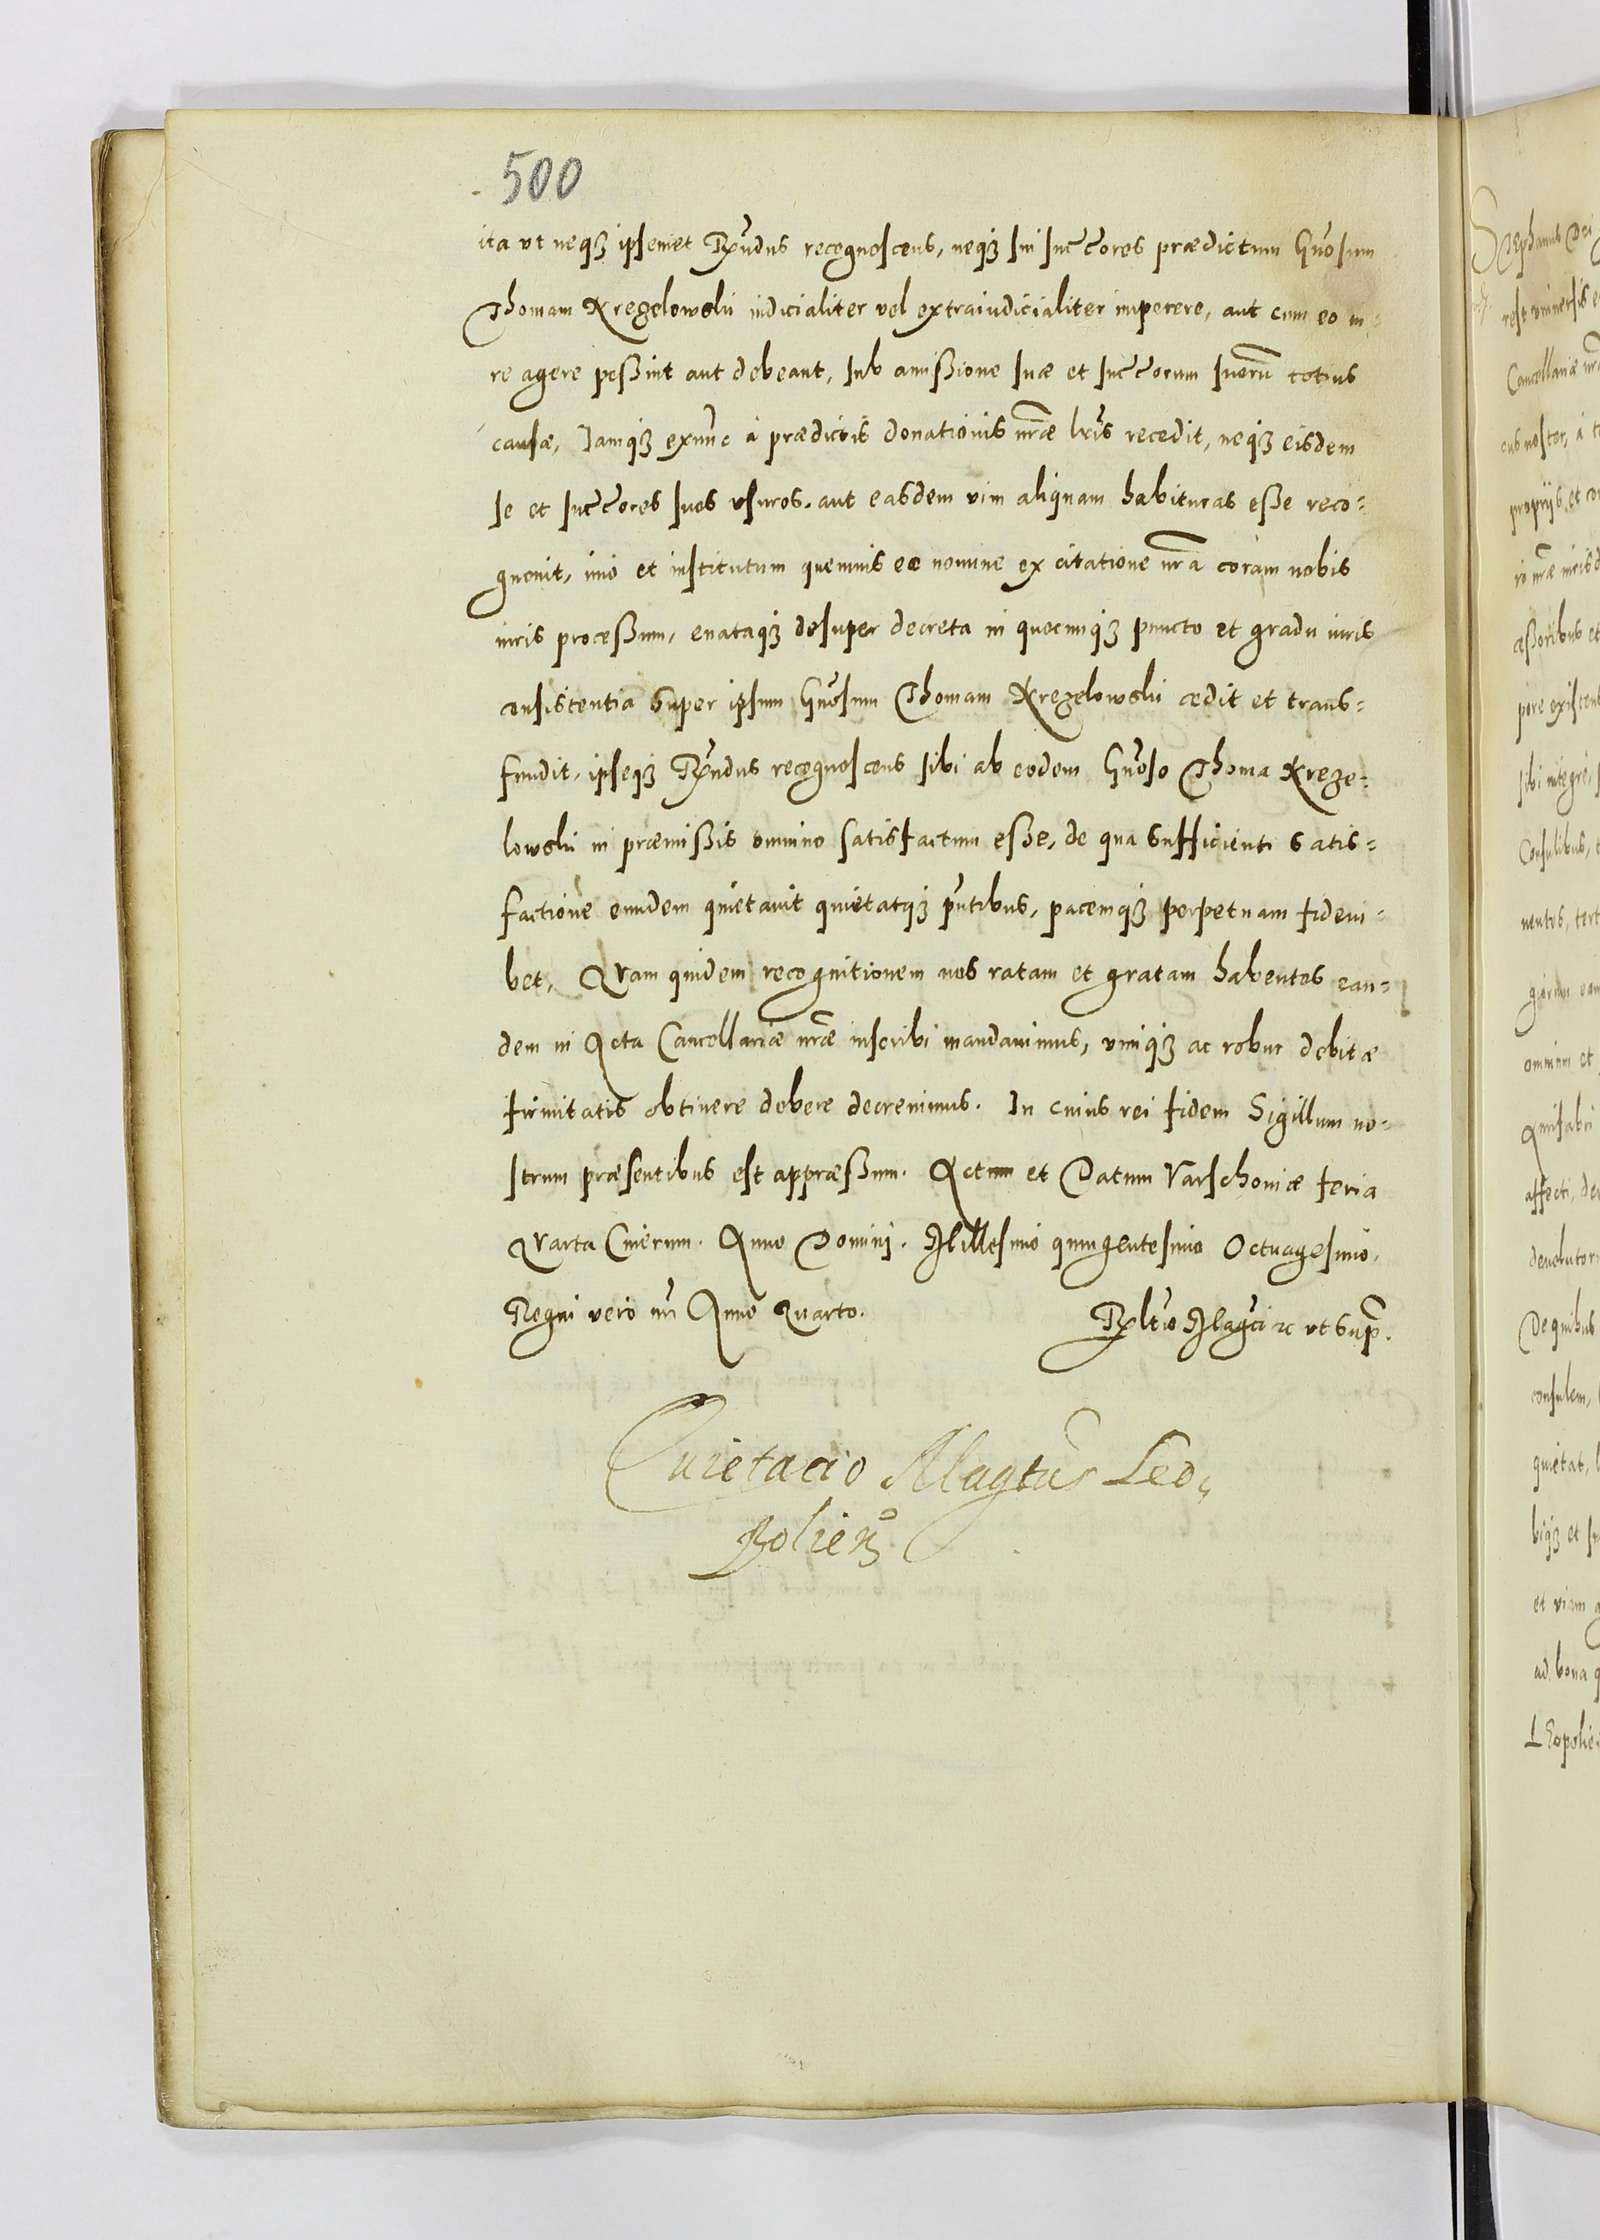 500
ita vt neq3 ipsemet Rndus recognoscens, neq3 sui succores praedictum Gnosum
Thomam Kregelowski iudicialiter vel extraiudicialiter impetere, aut cum eo iu-
re agere poßint aut debeant, sub amißione suae et succorum suorū totius
causae, Iamq3 exnūc à praedictis donationis nrae lris recedit, neq3 eisdem
se et succores suos vsuros, aut easdem vim aliquam habituras eße reco-
gnouit, imò et institutum quemuis eo nomine ex citatione nra coram nobis
iuris proceßum, enataq3 desuper decreta in quocunq3 puncto et gradu iuris
consistentia super ipsum Gnosum Thomam Kregelowski cedit et trans-
fundit, ipseq3 Rndus recognoscens sibi ab eodem Gnoso Thoma Krege-
lowski in praemißis omnino satisfactum eße, de qua sufficienti satis-
factione eundem quietauit quietatq3 pntibus, pacemq3 perpetuam fideiu-
bet, Quam quidem recognitionem nos ratam et gratam habentes ean-
dem in Acta Cancellariae nrae inscribi mandauimus, vimq3 ac robur debitae
firmitatis obtinere debere decreuimus. In cuius rei fidem Sigillum no-
strum praesentibus est appraeßum. Actum et Datum Varschouiae feria
Quarta Cinerum. Anno Domini. Millesimo quingentesimo Octuagesimo.
Regni verò nri Anno Quarto.
Rltio Magci 2c vt supr.
Quietacio Magtus Leo,
poliens
Stephanus Dei
rest vniuersis
Cancellariae nrae
cus noster, à
proprijs, et
nrae iurisd
ceßoribus et
pore existent
sibi integrè
Consulibus,
omnium et
affecti, de
De quibus
consulem,
quietat,
biq3 et
et viam
ad bona
LEopolie